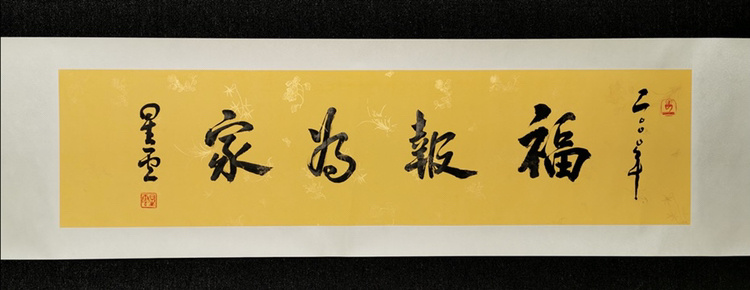 二〇〇〇年
福報為家
星雲